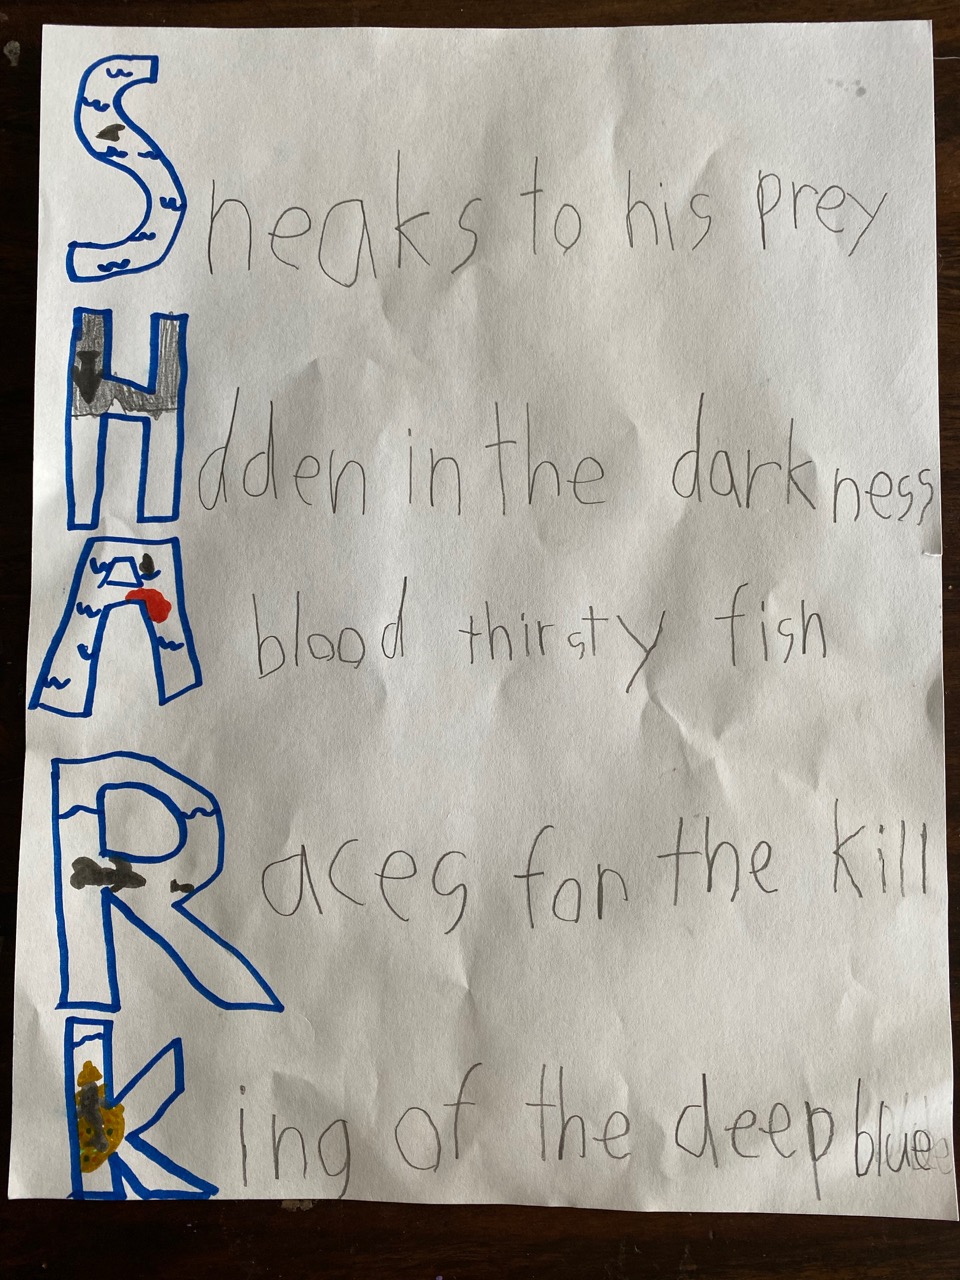 Sneaks to his prey
Hdden in the darkness
A blood thirsty fish
Races for the kill
King of the deep blue